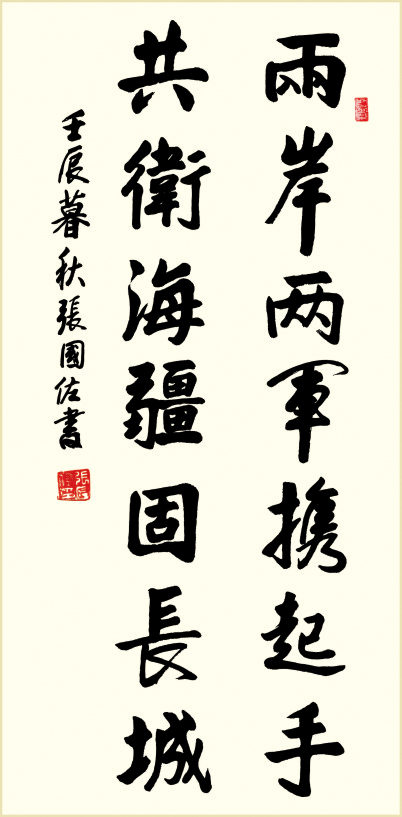 兩岸两軍携起手
共衛海疆固長城
壬辰暮秋張國佐書